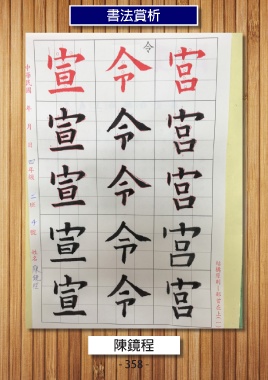 書法賞析
宮 令 宣
令
宮 令 宣
宮 令 宣
宮 令 宣
宮 令 宣
中華民國 年 月 日 四年級 二班 十號 姓名 陳鏡程
陳鏡程
- 358 -